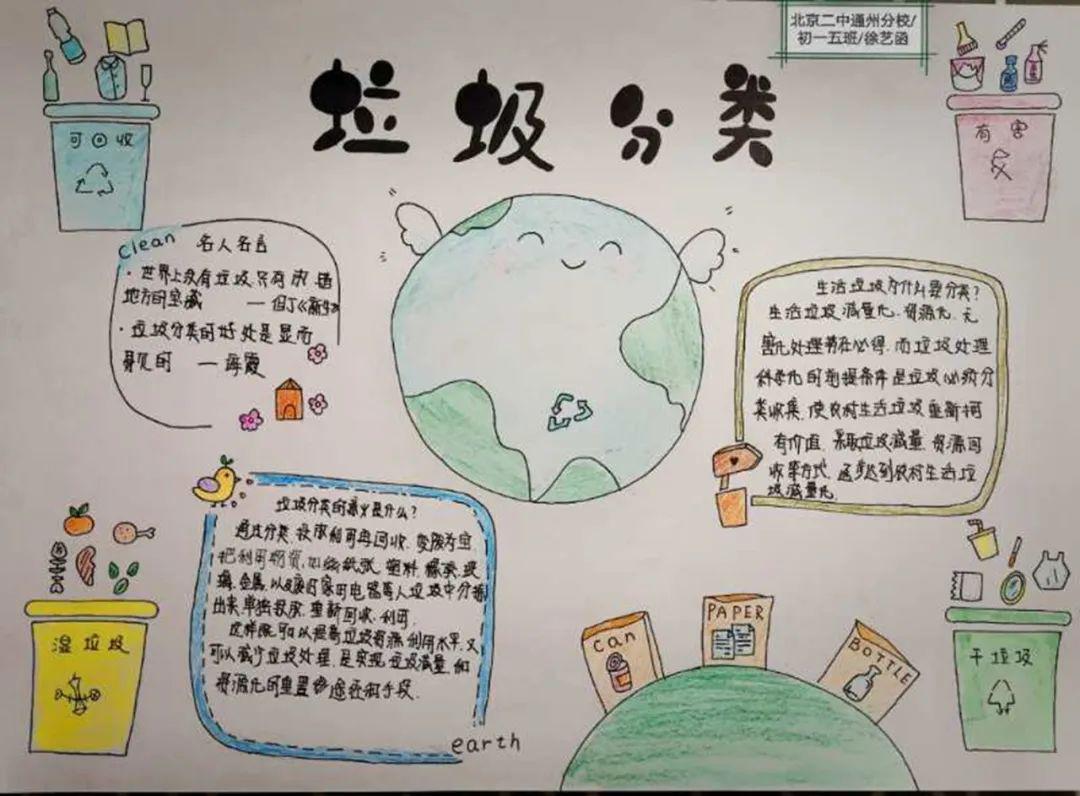 北京二中通州分校/
初一五班/徐艺函
垃圾分类
可回收
有害
clean 名人名言
·世界上没有垃圾,只有放错
地方的宝藏 —但丁《新生》
·垃圾分类的好处是显而
易见的 —海霞
生活垃圾为什么要分类?
生活垃圾减量化、资源化、无
害化处理势在必得,而垃圾处理
科学化的前提条件是垃圾必须分
类收集,使农村生活垃圾重新
有价值,采取垃圾减量、资源回
收等方式,逐步达到农村生活垃
圾减量化
垃圾分类的意义是什么?
通过分类投放和可再回收,变废为宝,
把利用物资,如纸张、塑料、橡胶、玻
璃、金属,以及废旧家用电器等从垃圾中分拣
出来,单独投放,重新回收、利用.
这样既可以提高垃圾资源利用水平,又
可以减少垃圾处理,是实现垃圾减量和
资源化的重要途径和手段.
earth
湿垃圾
can
PAPER
BOTTLE
干垃圾